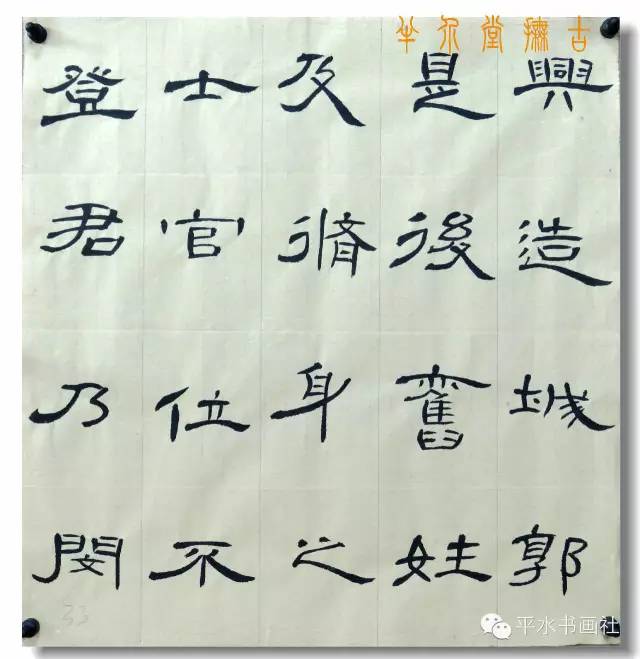 半 堂橅古
興造城郭
是後舊姓
及脩身之
士官位不
登君乃閔
33
平水书画社